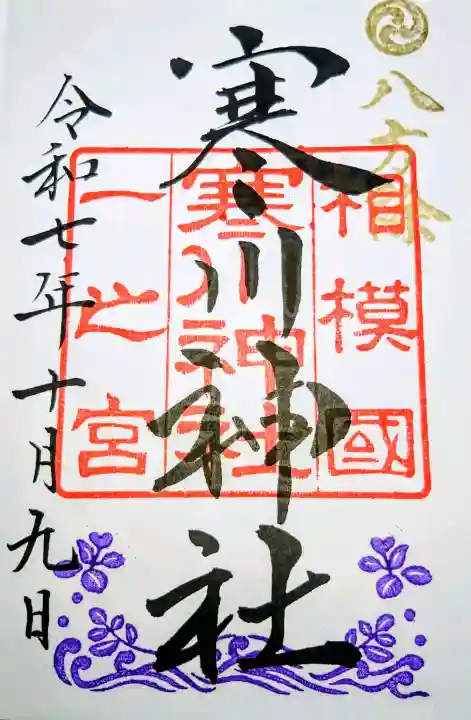 八方除
相模國
寒川神社
一之宮
寒川神社
令和七年十月九日